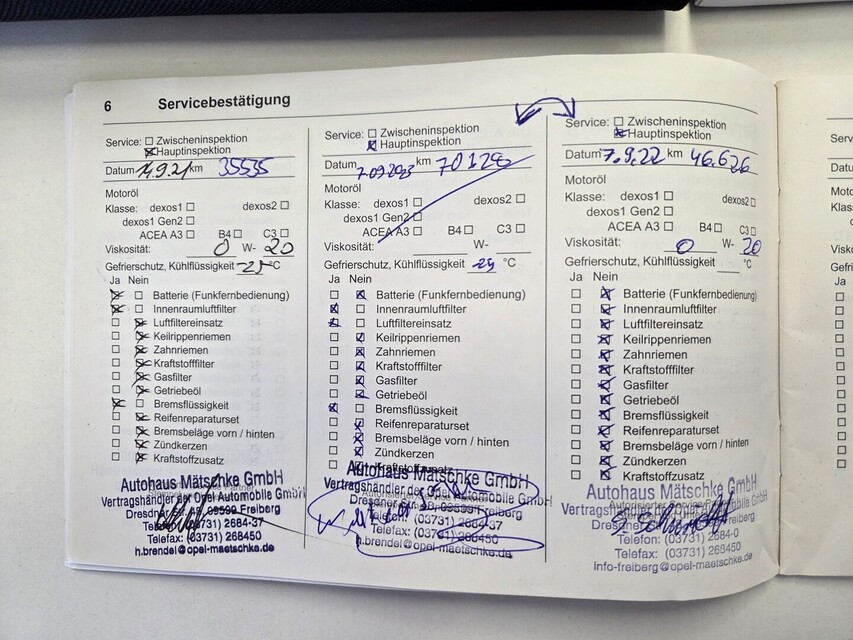 6 Servicebestätigung
Service: Zwischeninspektion
Hauptinspektion
Datum 1.9.21 km 35535
Motoröl
Klasse: dexos1 dexos2
dexos1 Gen2
ACEA A3 B4 C3
Viskosität: 0 W- 20
Gefrierschutz, Kühlflüssigkeit -25 °C
Ja Nein
Batterie (Funkfernbedienung)
Innenraumluftfilter
Luftfiltereinsatz
Keilrippenriemen
Zahnriemen
Kraftstofffilter
Gasfilter
Getriebeöl
Bremsflüssigkeit
Reifenreparaturset
Bremsbeläge vorn / hinten
Zündkerzen
Kraftstoffzusatz
Autohaus Mätschke GmbH
Vertragshändler der Opel Automobile GmbH
Dresdner Str. 48, 09599 Freiberg
Telefon: (03731) 2684-37
Telefax: (03731) 268450
h.brendel@opel-maetschke.de
Service: Zwischeninspektion
Hauptinspektion
Datum km 70128
Motoröl
Klasse: dexos1 dexos2
dexos1 Gen2
ACEA A3 B4 C3
Viskosität: W-
Gefrierschutz, Kühlflüssigkeit -25 °C
Ja Nein
Batterie (Funkfernbedienung)
Innenraumluftfilter
Luftfiltereinsatz
Keilrippenriemen
Zahnriemen
Kraftstofffilter
Gasfilter
Getriebeöl
Bremsflüssigkeit
Reifenreparaturset
Bremsbeläge vorn / hinten
Zündkerzen
Kraftstoffzusatz
Autohaus Mätschke GmbH
Vertragshändler der Opel Automobile GmbH
Dresdner Str. 48, 09599 Freiberg
Telefon: (03731) 2684-37
Telefax: (03731) 268450
h.brendel@opel-maetschke.de
Service: Zwischeninspektion
Hauptinspektion
Datum 7.9.22 km 46.626
Motoröl
Klasse: dexos1 dexos2
dexos1 Gen2
ACEA A3 B4 C3
Viskosität: 0 W- 20
Gefrierschutz, Kühlflüssigkeit °C
Ja Nein
Batterie (Funkfernbedienung)
Innenraumluftfilter
Luftfiltereinsatz
Keilrippenriemen
Zahnriemen
Kraftstofffilter
Gasfilter
Getriebeöl
Bremsflüssigkeit
Reifenreparaturset
Bremsbeläge vorn / hinten
Zündkerzen
Kraftstoffzusatz
Autohaus Mätschke GmbH
Freiberg
Telefon: (03731) 2684-0
Telefax: (03731) 268450
info-freiberg@opel-maetschke.de
Ja